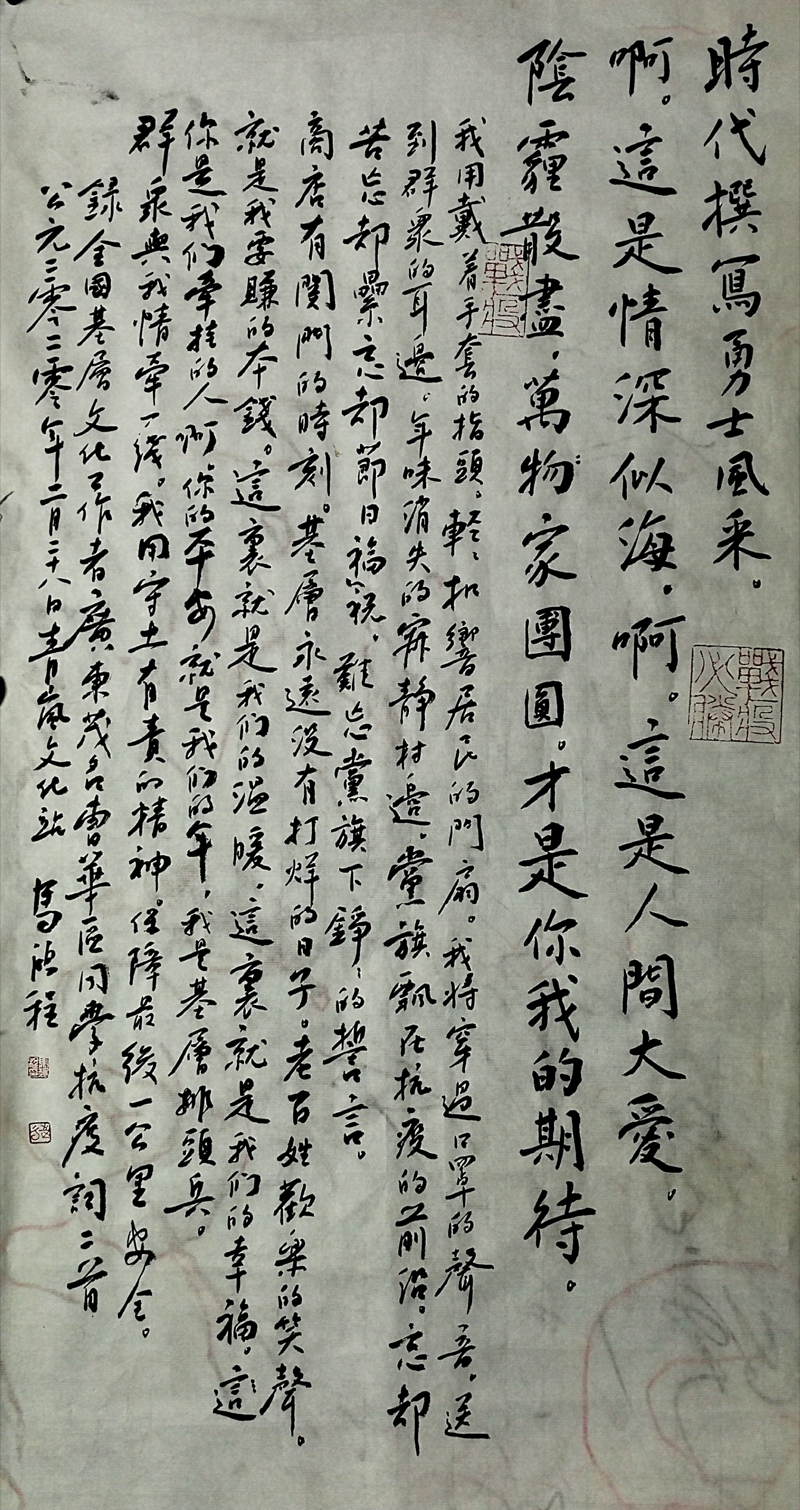 時代撰寫勇士風采。
啊。這是情深似海，啊。這是人間大愛。
陰霾散盡，萬物家團圓。才是你我的期待。
我用戴着手套的指頭。輕輕扣響居民的門扇。我將穿過口罩的聲音，送
到群衆的耳邊。年味消失的寂靜村邊，黨旗飄在抗疫的前沿。忘却
苦忘却纍忘却節日福祝，難忘黨旗下錚錚的誓言。
商店有関門的時刻。基層永遠没有打烊的日子。老百姓歡樂的笑聲。
就是我要賺的本錢。這裏就是我们的温暖，這裏就是我们的幸福，這
你是我们牽挂的人啊你的平安就是我们的年，我是基層排頭兵。
群衆與我情牽一綫。我用守土有責的精神。保障最後一公里安全。
録全國基層文化工作者廣東茂名曹華區同學抗疫詞二首
公元二零二零年二月二十八日青嵐文化站 馬 程
戰疫
戰疫必勝